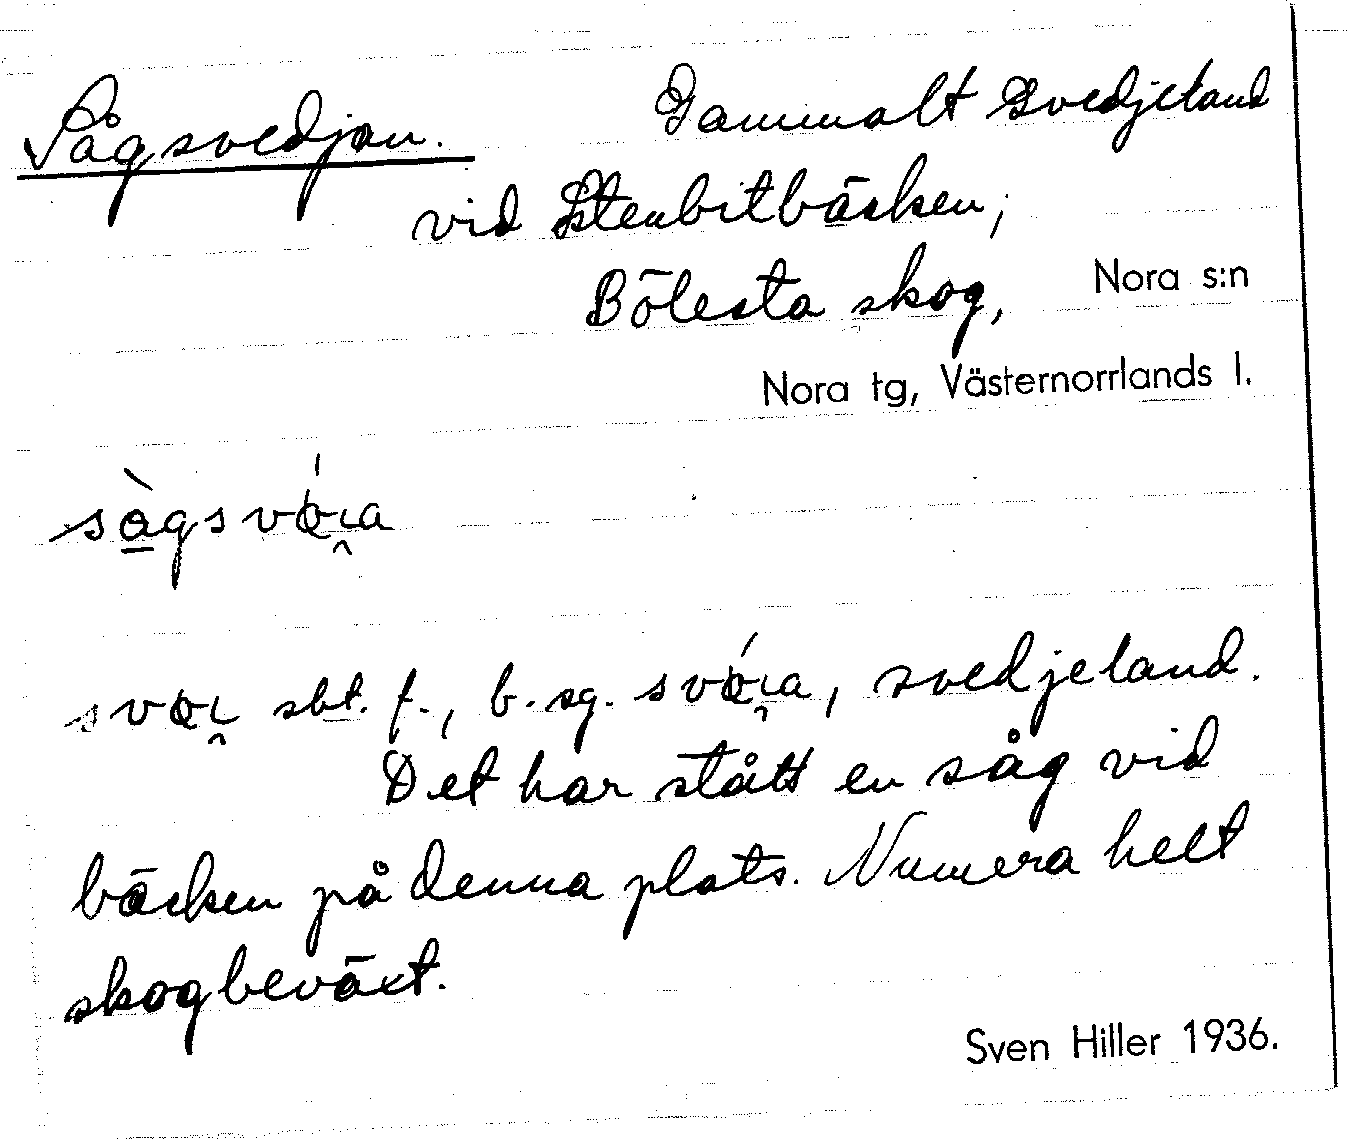 Sågsvedjan. Gammalt Svedjeland
vid Stenbitbäcken,
Bölesta skog, Nora s:n
Nora tg, Västernorrlands l.
sbt. f., b. sg. svedjeland.
Det har stått en såg vid
bäcken på denna plats. Numera helt
skogbeväxt.
Sven Hiller 1936.